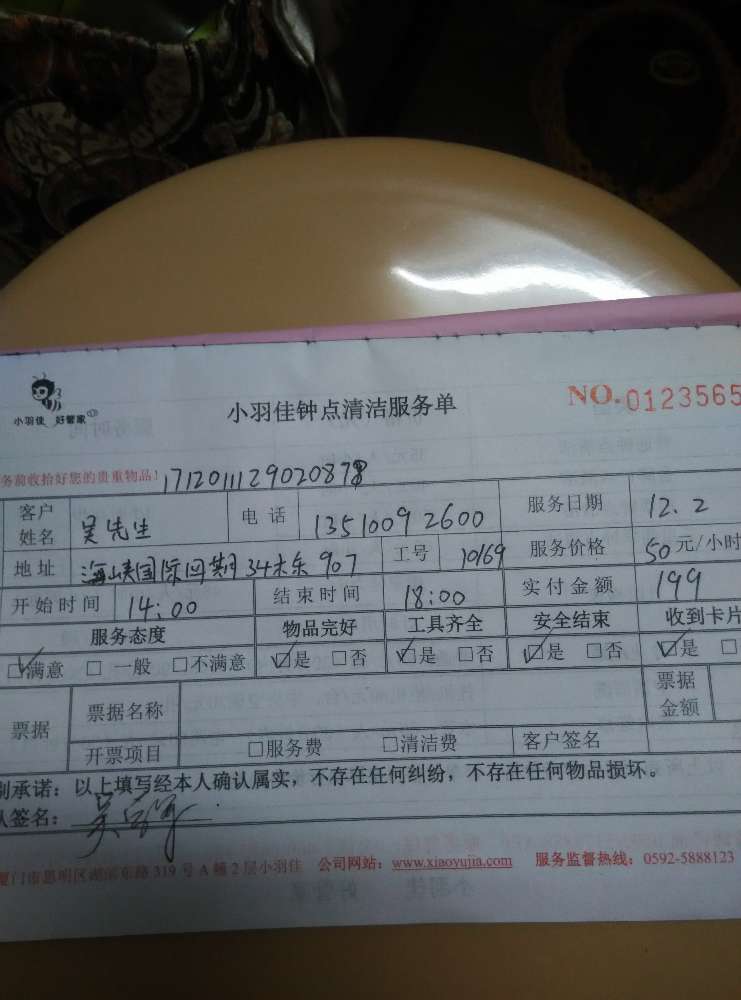 小羽佳 好管家
小羽佳钟点清洁服务单
NO.0123565
务前收拾好您的贵重物品! 171201129020878
客户姓名 吴先生 电话 13510092600 服务日期 12.2
地址 海峡国际四期34栋 907 工号 10169 服务价格 50元/小时
开始时间 14:00 结束时间 18:00 实付金额 199
服务态度 物品完好 工具齐全 安全结束 收到卡片
☑满意 □一般 □不满意 ☑是 □否 ☑是 □否 ☑是 □否 ☑是 □
票据 票据名称 票据金额
开票项目 □服务费 □清洁费 客户签名
别承诺：以上填写经本人确认属实，不存在任何纠纷，不存在任何物品损坏。
人签名： 吴
厦门市思明区湖滨东路319号A幢2层小羽佳 公司网站：www.xiaoyujia.com 服务监督热线：0592-5888123